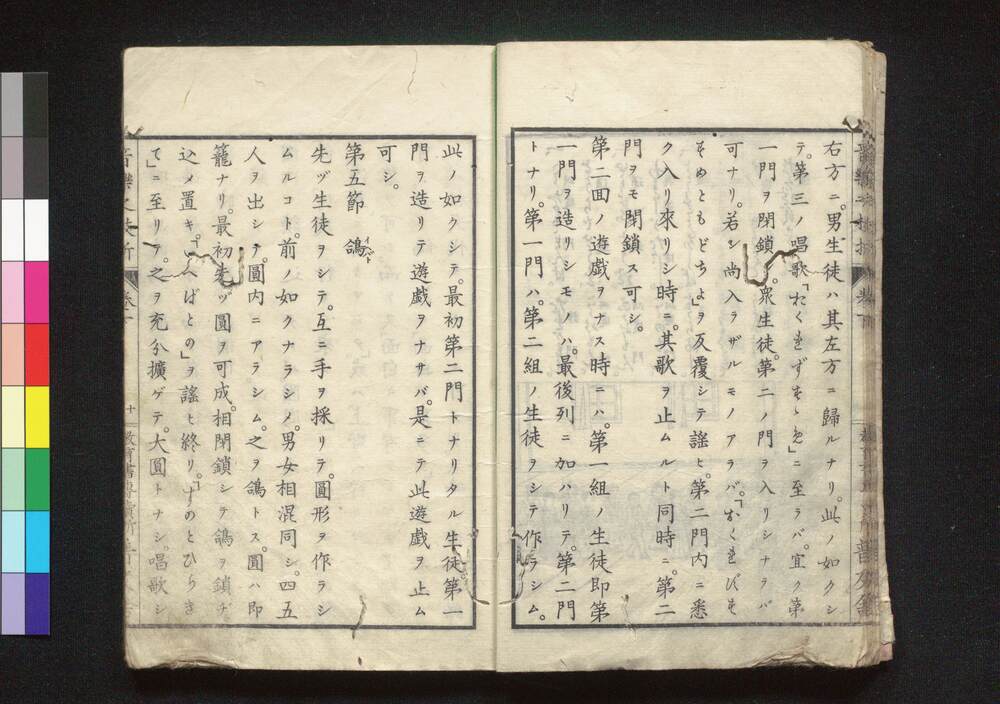 右方ニ。男生徒ハ其左方ニ歸ルナリ。此ノ如クシ
テ。第三ノ唱歌「おくれずすゝめ」ニ至ラバ。宜ク第
一門ヲ閉鎖シ。衆生徒。第二ノ門ヲ入リシナラバ
可ナリ。若シ尚入ラザルモノアラバ。「おくれびす
すめともどちよ」ヲ反覆シテ謠ヒ。第二門内ニ悉
ク入リ來リシ時ニ。其歌ヲ止ムルト同時ニ。第二
門ヲモ閉鎖ス可シ。
第二回ノ遊戲ヲナス時ニハ。第一組ノ生徒即第
一門ヲ造リシモノハ。最後列ニ加ハリテ。第二門
トナリ。第一門ハ。第二組ノ生徒ヲシテ作ラシム。
此ノ如クシテ。最初第二門トナリタル生徒。第一
門ヲ造リテ遊戲ヲナサバ。是ニテ此遊戲ヲ止ム
可シ。
第五節 鴿
先ヅ生徒ヲシテ。互ニ手ヲ採リテ。圓形ヲ作ラシ
ムルコト。前ノ如クナラシメ。男女相混同シ。四五
人ヲ出シテ。圓内ニアラシム。之ヲ鴿トス。圓ハ即
籠ナリ。最初先ヅ圓ヲ可成。相閉鎖シテ鴿ヲ鎖ヂ
込メ置キ。「いへばとの」ヲ謠ヒ終リ。「すのとひらき
て」ニ至リテ。之ヲ充分擴ゲテ。大圓トナシ。唱歌シ